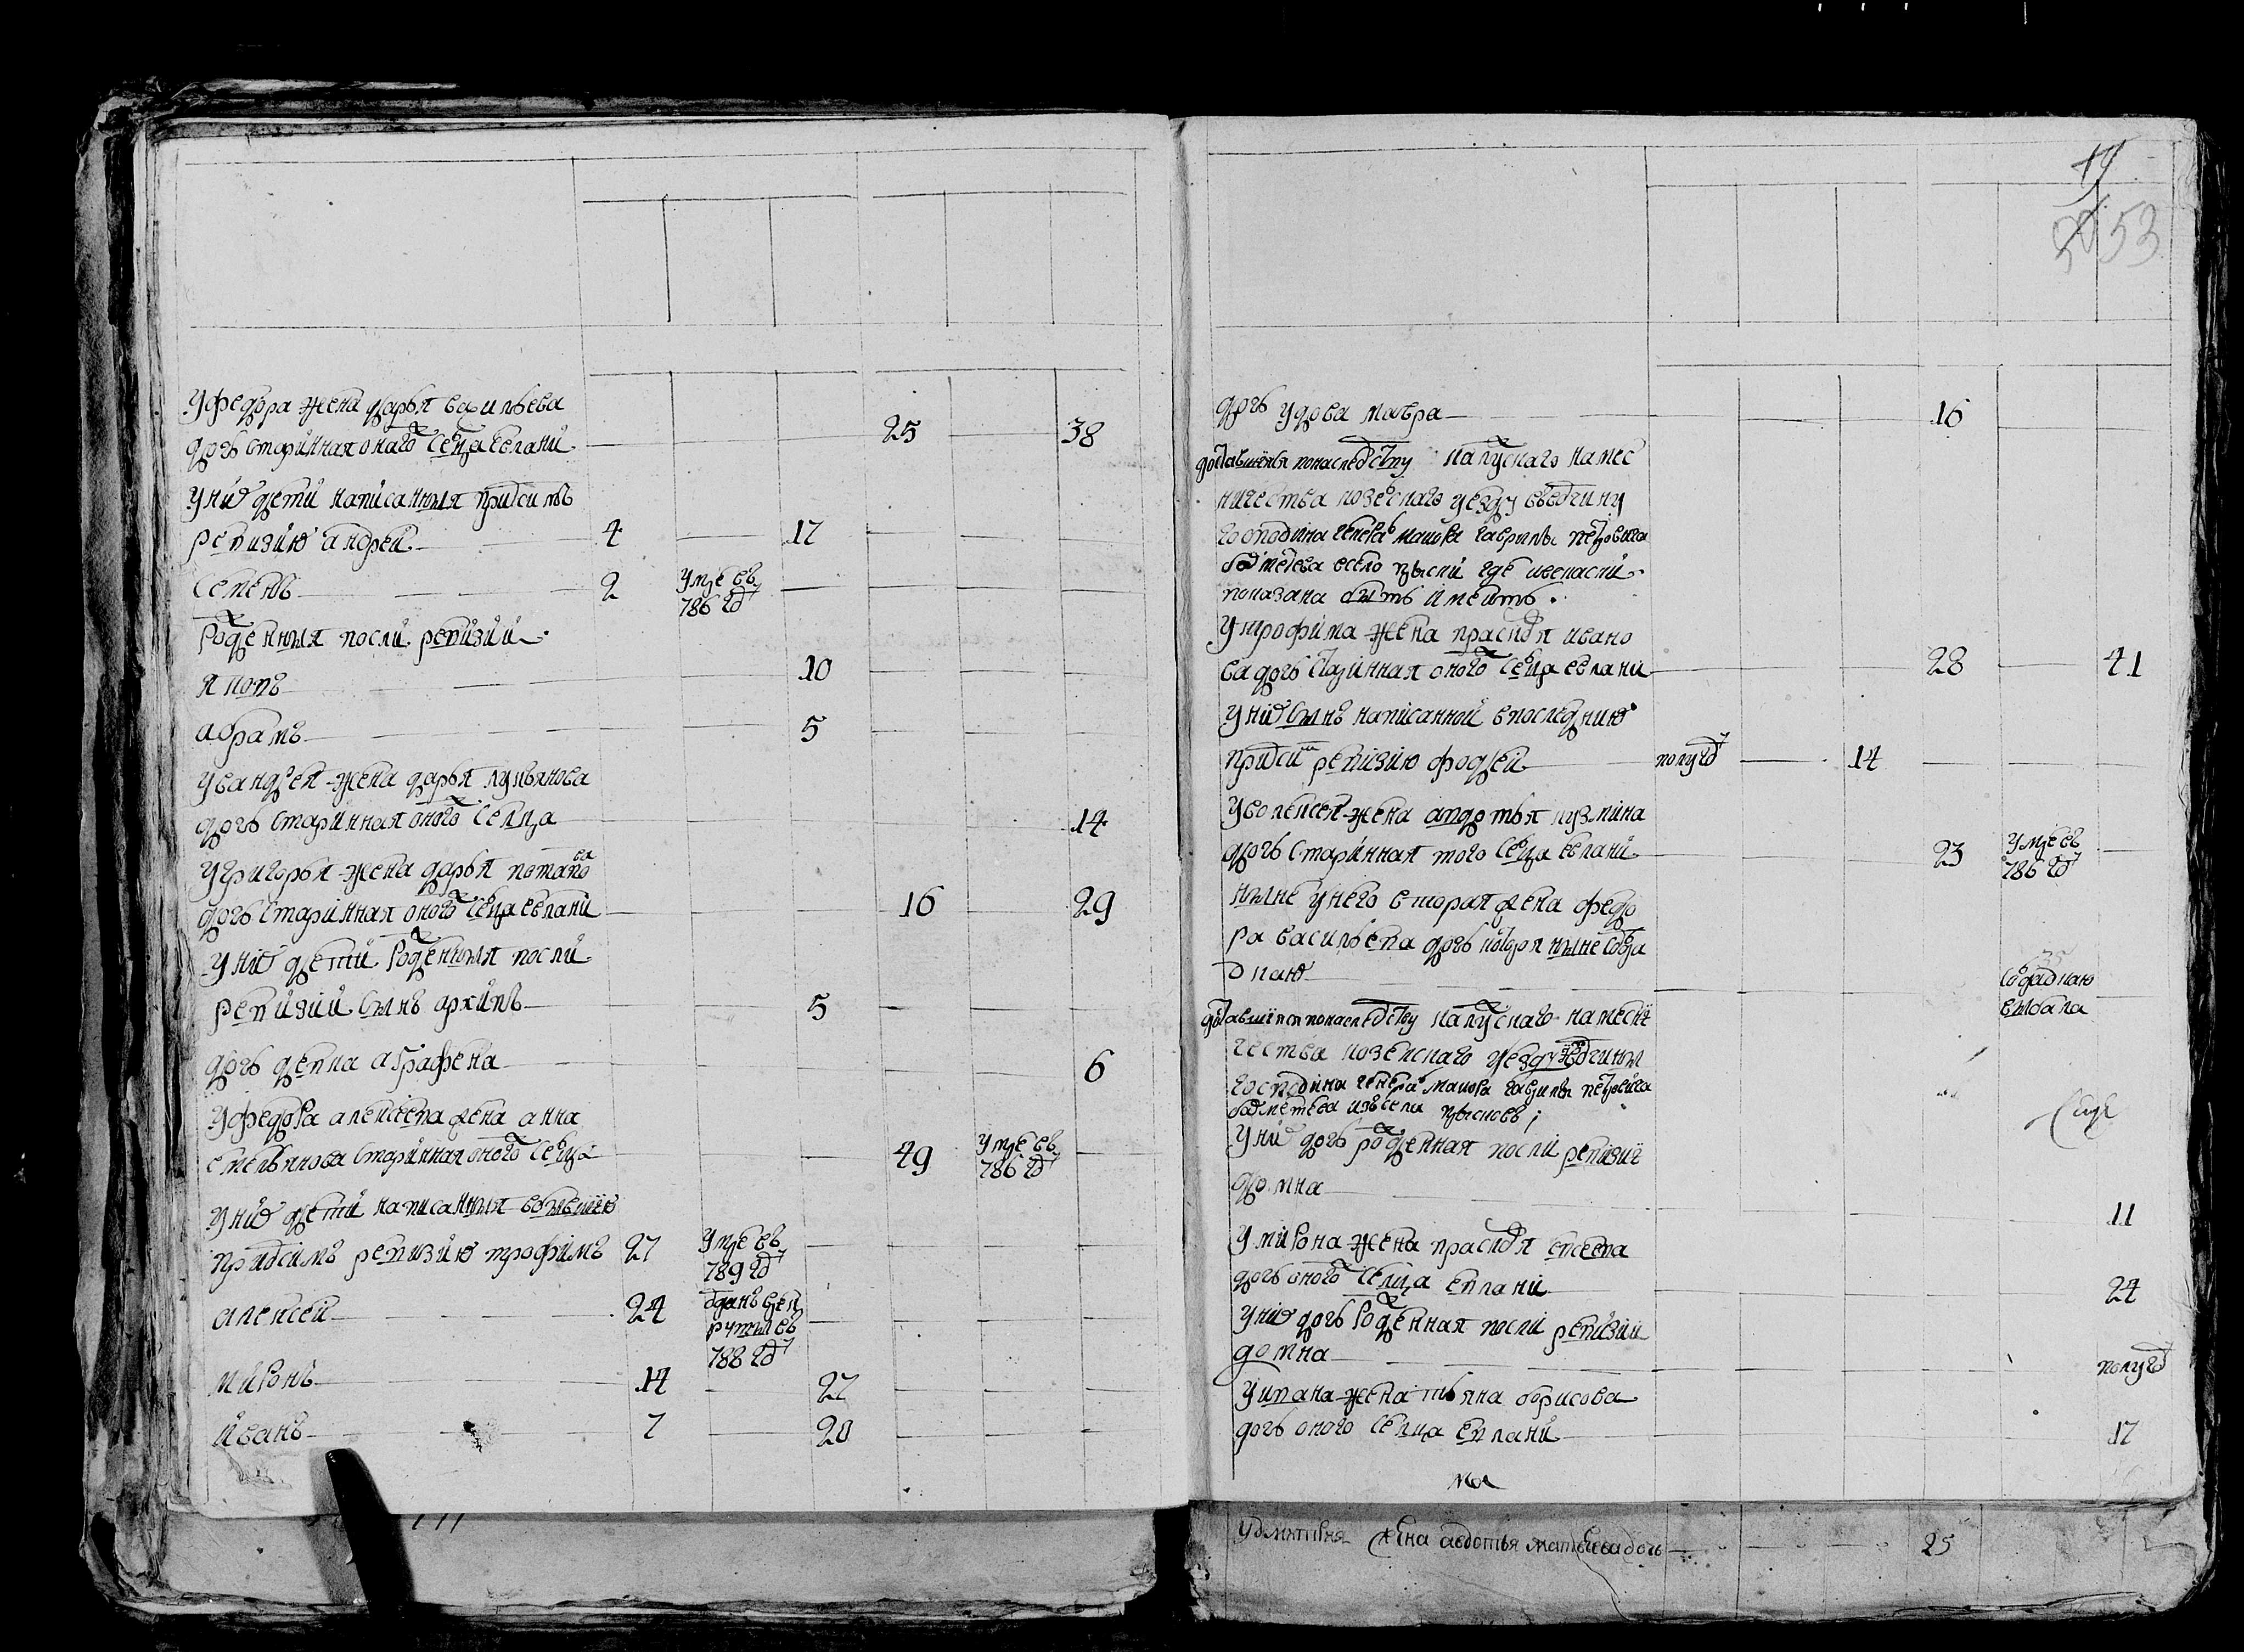 У федора жена дарья васильева
дочь старинная оного селца евланй 25 38
У них дети написанныя при дсимъ
ревизию андрей 4 17
Семенъ 2 умре въ 786 год
Рожденныя посли ревизии
яковъ 10
абрамъ 5
У вандрея жена дарья лукьянова
дочь старинная оного селца 14
У григорья жена дарья потапова
дочь старинная оного селца евлани 16 29
У них дети Рожденныя посли
ревизии сынъ архипъ 5
дочь девка аграфена 6
У федора алексеева жена анна
емельянова старинная оного селца 49 умре въ 786 год
У них дети написанныя
придсимъ ревизию трофимъ 27 умре въ 789 год
алексей 24 отданъ в рекруты въ 788 год
миронъ 14 27
иванъ 7 20
19
53
дочь удова мавра 16
доставшеися по наследству калускаго намес
ничества козелскаго уезду
господина генерал маиора гаврилы петровича
показана быть имеитъ.
У трофима жена праскдя ивано
ва дочь старинная оного селца евлани 28 41
У них сынъ написанной в последнию
придсим ревизию фодей полугод 14
У волексея жена авдотья кузмина
дочь старинная того селца евлани 23 умре въ 786 год
ныне у него вторая жена федо
ра васильева дочь которая ныне
доставшеися по наследству калускаго наместни
чества козелскаго уезду
господина генерал маиора гаврилы петровича
У них дочь рожденная посли ревизии
домна 11
У мирона жена праскдя евсеева
дочь оного селца евлани 24
У них дочь Рожденная посли ревизии
домна полугод
У ивана жена тьяна борисова
дочь оного селца евлани 17
жена авдотья матвеева дочь 25